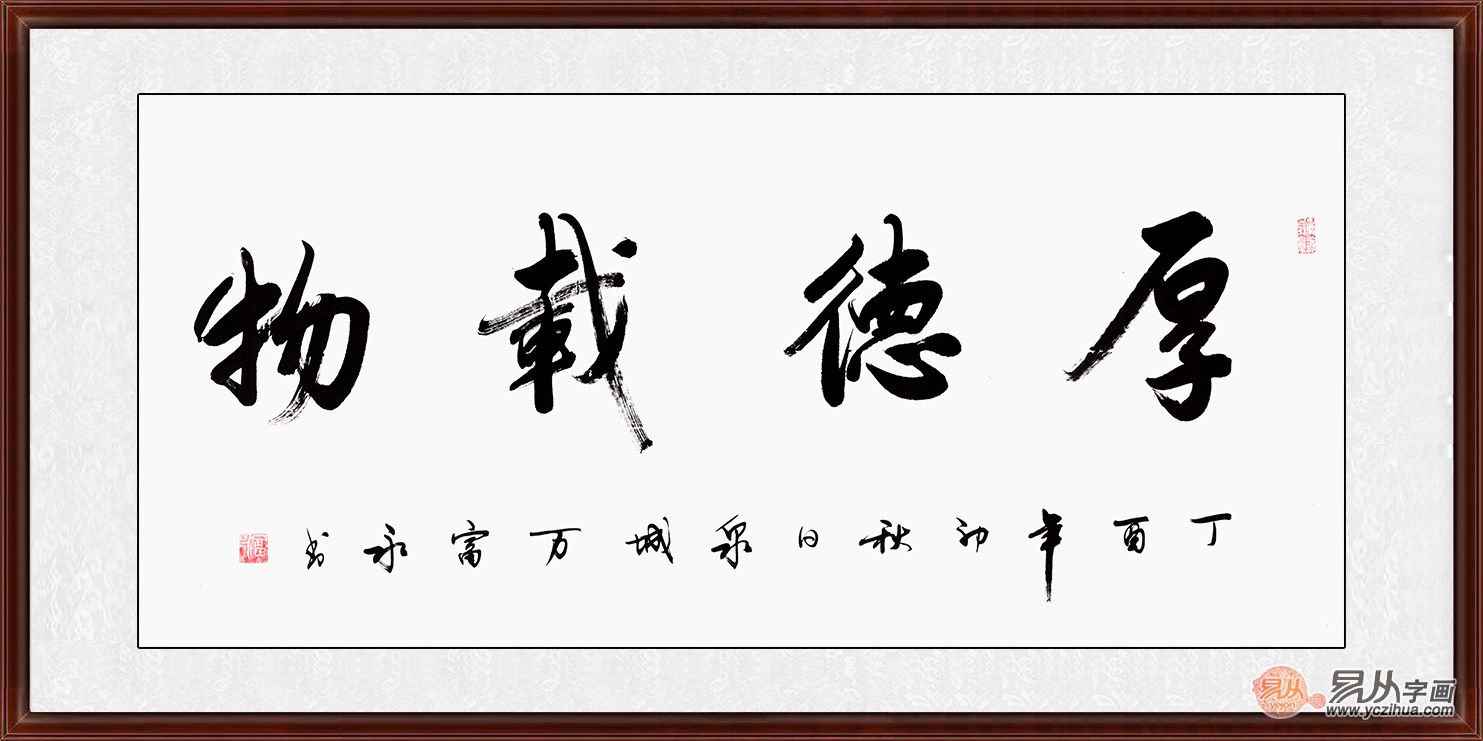 厚德載物
丁酉年初秋日泉城万富永书
易从
yicon
易从字画
www.yczihua.com